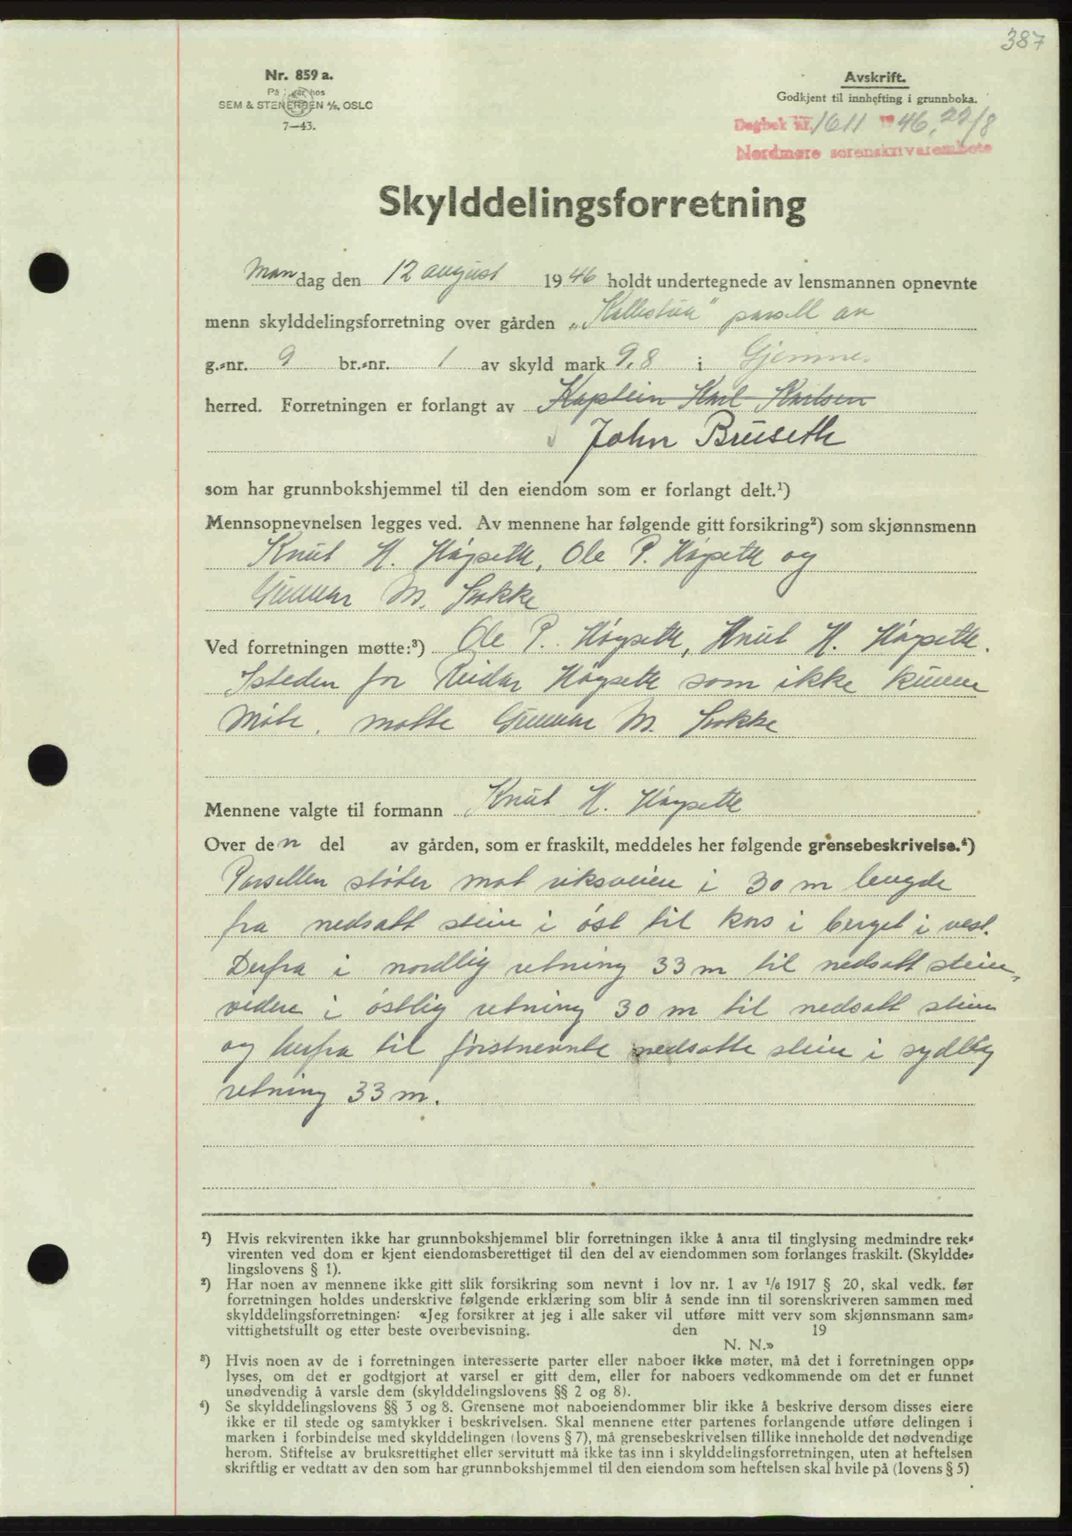 387
Nr. 859 a.
På lager hos
SEM & STENERSEN A/S, OSLO
7—43.
Avskrift.
Godkjent til innhefting i grunnboka.
Dagbok nr. 1611 1946, 22/8
Nordmøre sorenskriverembete
Skylddelingsforretning
Mandag den 12 august 1946 holdt undertegnede av lensmannen opnevnte
menn skylddelingsforretning over gården „Kallestua" parsell av
g.-nr. 9 br.-nr. 1 av skyld mark 9,8 i Gjemnes
herred. Forretningen er forlangt av Kaptein Karl Karlsen
John Bruseth
som har grunnbokshjemmel til den eiendom som er forlangt delt.¹)
Mennsopnevnelsen legges ved. Av mennene har følgende gitt forsikring²) som skjønnsmenn
Knut H. Høgseth, Ole P. Høgseth og
Gunnar M. Stokke
Ved forretningen møtte:³) Ole P. Høgseth, Knut H. Høgseth.
Isteden for Reidar Høgseth som ikke kunne
møte, møtte Gunnar M. Stokke
Mennene valgte til formann Knut H. Høgseth
Over den del av gården, som er fraskilt, meddeles her følgende grensebeskrivelse.⁴)
Parsellen støter mot riksveien i 30 m lengde
fra nedsatt stein i øst til kors i berget i vest.
Derfra i nordlig retning 33 m til nedsatt stein,
videre i østlig retning 30 m til nedsatt stein
og herfra til førstnevnte nedsatte stein i sydlig
retning 33 m.
¹) Hvis rekvirenten ikke har grunnbokshjemmel blir forretningen ikke å anta til tinglysing medmindre rek-
virenten ved dom er kjent eiendomsberettiget til den del av eiendommen som forlanges fraskilt. (Skyldde-
lingslovens § 1).
²) Har noen av mennene ikke gitt slik forsikring som nevnt i lov nr. 1 av ¹/₆ 1917 § 20, skal vedk. før
forretningen holdes underskrive følgende erklæring som blir å sende inn til sorenskriveren sammen med
skylddelingsforretningen: «Jeg forsikrer at jeg i alle saker vil utføre mitt verv som skjønnsmann sam-
vittighetsfullt og etter beste overbevisning. den 19
N. N.»
³) Hvis noen av de i forretningen interesserte parter eller naboer ikke møter, må det i forretningen opp-
lyses, om det er godtgjort at varsel er gitt dem, eller for naboers vedkommende om det er funnet
unødvendig å varsle dem (skylddelingslovens §§ 2 og 8).
⁴) Se skylddelingslovens §§ 3 og 8. Grensene mot naboeiendommer blir ikke å beskrive dersom disses eiere
ikke er til stede og samtykker i beskrivelsen. Skal mennene etter partenes forlangende utføre delingen i
marken i forbindelse med skylddelingen (lovens § 7), må grensebeskrivelsen tillike inneholde det nødvendige
herom. Stiftelse av bruksrettighet eller servitutt må ikke tas inn i skylddelingsforretningen, uten at heftelsen
skriftlig er vedtatt av den som har grunnbokshjemmel til den eiendom som heftelsen skal hvile på (lovens § 5)